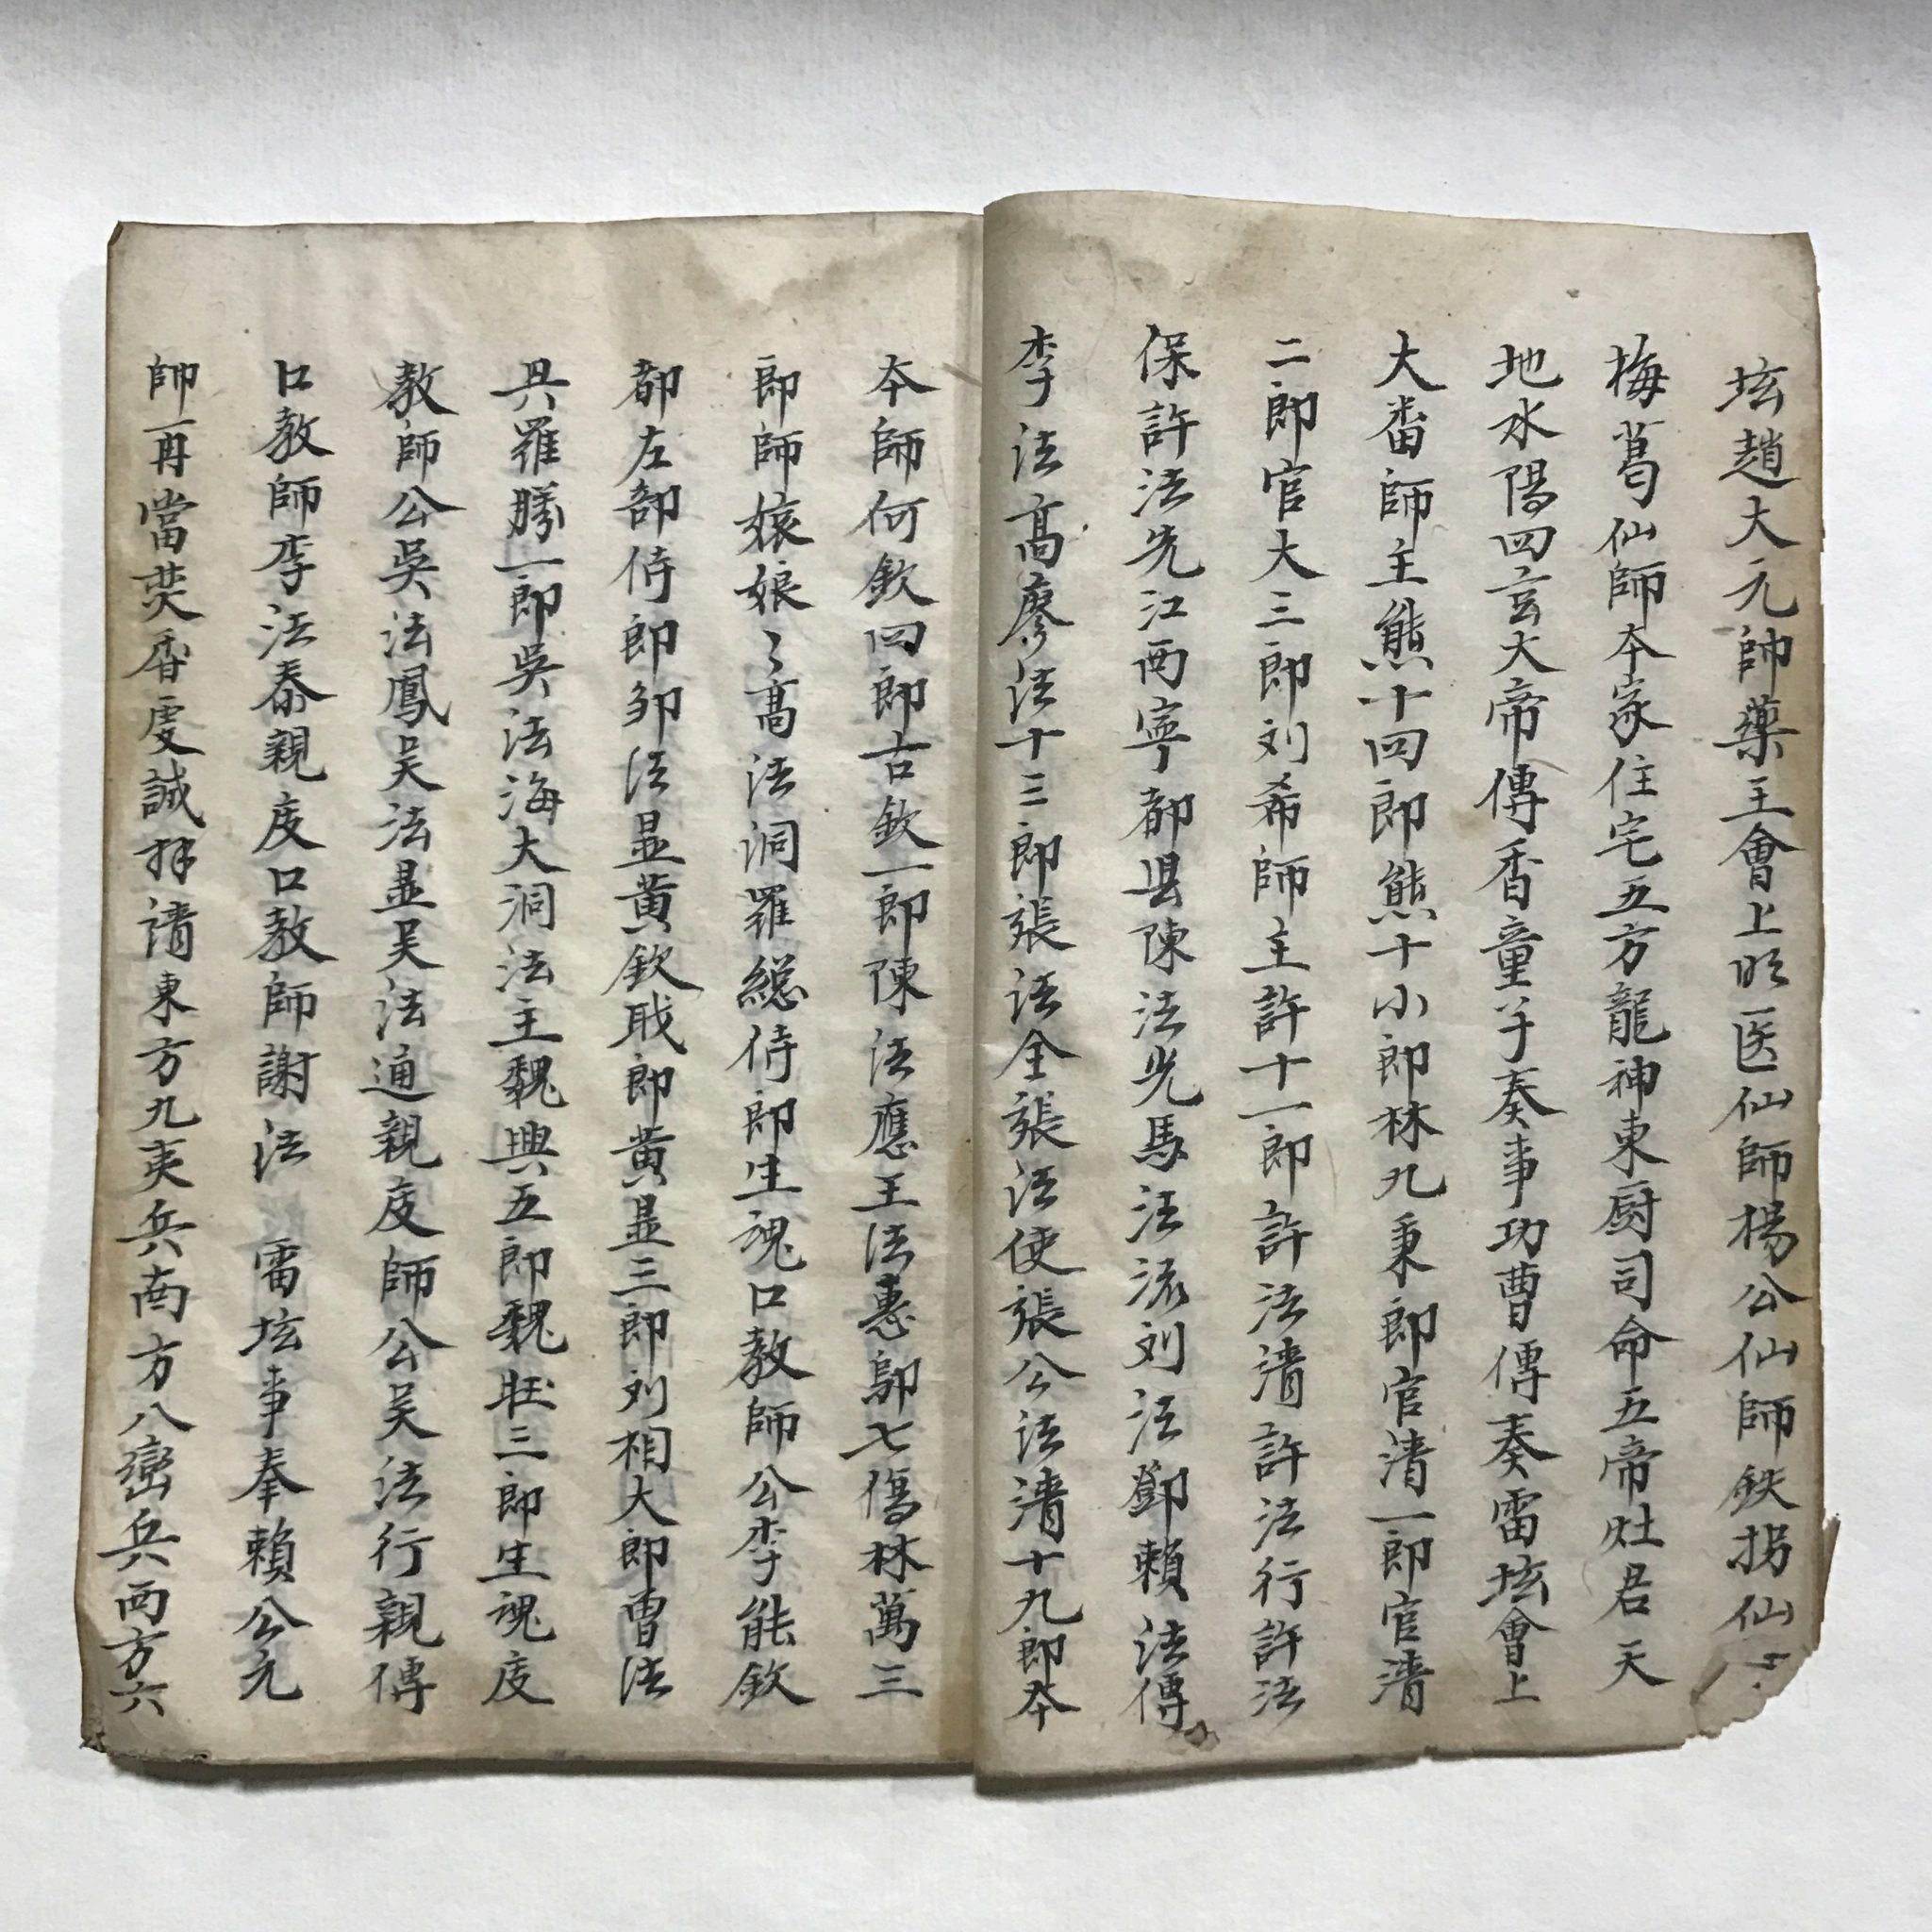 坛趙大元帥藥王會上明医仙師楊公仙師鉄拐仙
梅葛仙師本家住宅五方龍神東厨司命五帝灶君天
地水陽四玄大帝傳香童子奏事功曹傳奏雷坛會上
大畨師主熊十四郎熊十小郎林九秉郎官清一郎官清
二郎官大三郎刘希師主許十一郎許法清許法行許法
保許法先江西寕都县陳法先馬法流刘法鄧賴法傳
李法髙廖法十三郎張法全張法使張公法清十九郎本
本師何欽四郎古欽一郎陳法應王法惠鄔七傷林萬三
郎師娘娘〻髙法洞羅総侍郎生魂口教師公李能欽
都左部侍郎邹法显黄欽戝郎黄显三郎刘相大郎曹法
具羅勝一郎吳法海大洞法主魏興五郎魏壯三郎生魂度
教師公吳法鳳吴法显吴法通親度師公吴法行親傳
口教師李法泰親度口教師謝法 雷坛事奉賴公元
帥一再當焚香虔誠拜請東方九夷兵南方八蛮兵西方六